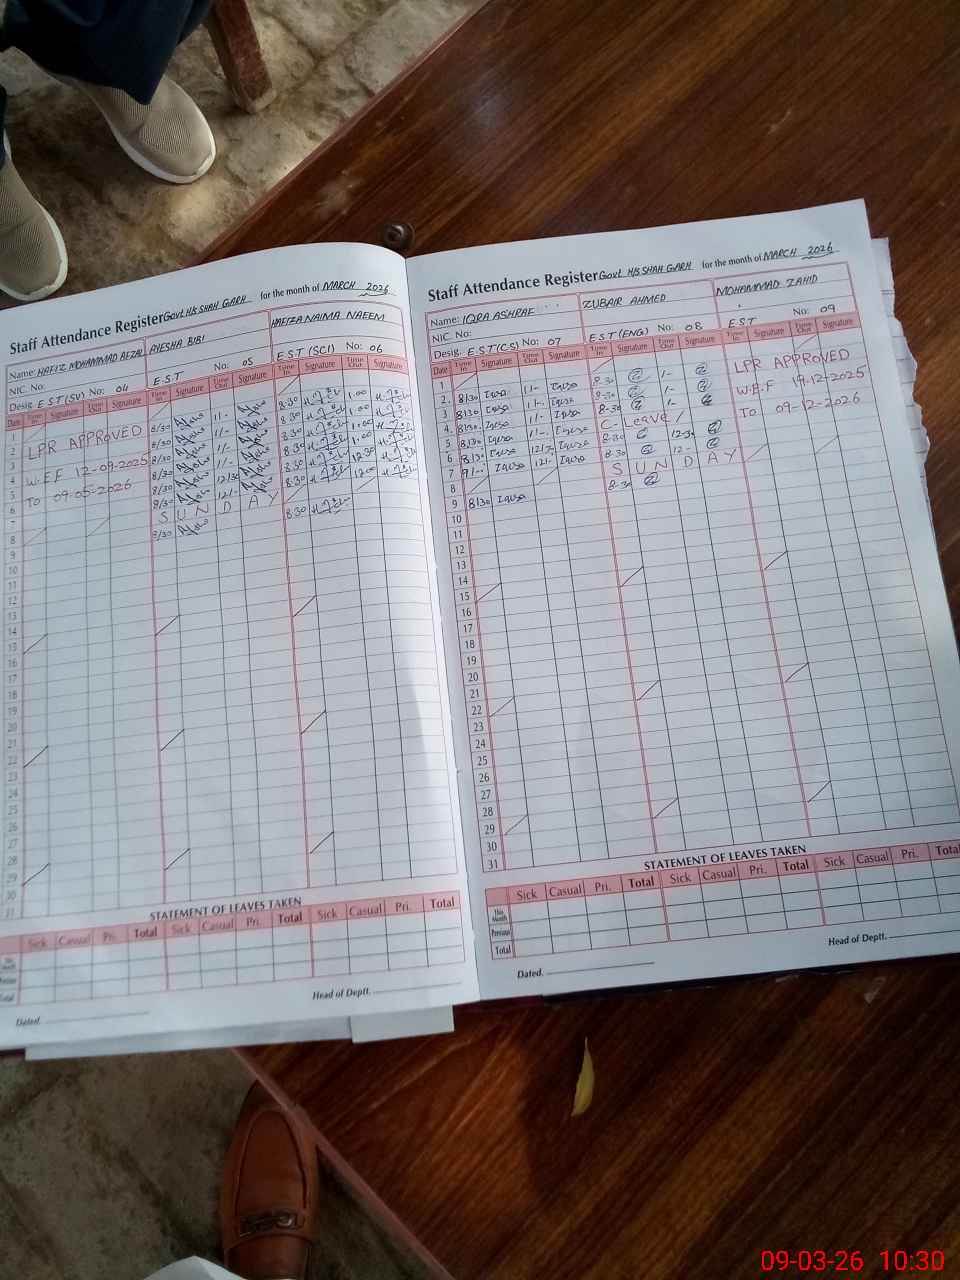 Staff Attendance Register Govt H/S SHAH GARH for the month of MARCH 2026
Name: HAFIZ MOHAMMAD AFZAL AYESHA BIBI HAFIZA NAIMA NAEEM
NIC. No:
Desig. E.S.T(SV) No: 04 E.S.T No: 05 E.S.T (SCI) No: 06
Date Time In Signature Time Out Signature Time In Signature Time Out Signature Time In Signature Time Out Signature
1
2 LPR APPROVED 8/30 1/- 8.30 1.00
3 8/30 1/- 8.30 1.00
4 W.E.F 12-09-2025 8/30 1/- 8.30 1.00
5 TO 09-05-2026 8/30 1/- 8.30 1.00
6 8/30 12/30 8.30 12.30
7 8/30 12/- 8.30 12.00
8 SUNDAY
9 8/30 8.30
10
11
12
13
14
15
16
17
18
19
20
21
22
23
24
25
26
27
28
29
30
31
STATEMENT OF LEAVES TAKEN
Sick Casual Pri. Total Sick Casual Pri. Total Sick Casual Pri. Total
This Month
Previous
Total
Dated. Head of Deptt.
Staff Attendance Register Govt H/S SHAH GARH for the month of MARCH 2026
Name: IQRA ASHRAF ZUBAIR AHMED MOHAMMAD ZAHID
NIC. No:
Desig. E.S.T(CS) No: 07 E.S.T (ENG) No: 08 E.S.T No: 09
Date Time In Signature Time Out Signature Time In Signature Time Out Signature Time In Signature Time Out Signature
1
2 8/30 Iqra 1/- Iqra 8-30 1- LPR APPROVED
3 8/30 Iqra 1/- Iqra 8-30 1-
4 8/30 Iqra 1/- Iqra 8-30 1- W.E.F 19-12-2025
5 8/30 Iqra 1/- Iqra C-Leave / TO 09-12-2026
6 8/30 Iqra 12/30 Iqra 8-30 12-30
7 9/- Iqra 12/- Iqra 8-30 12-
8 SUNDAY
9 8/30 Iqra 8-30
10
11
12
13
14
15
16
17
18
19
20
21
22
23
24
25
26
27
28
29
30
31
STATEMENT OF LEAVES TAKEN
Sick Casual Pri. Total Sick Casual Pri. Total Sick Casual Pri. Total
This Month
Previous
Total
Dated. Head of Deptt.
09-03-26 10:30